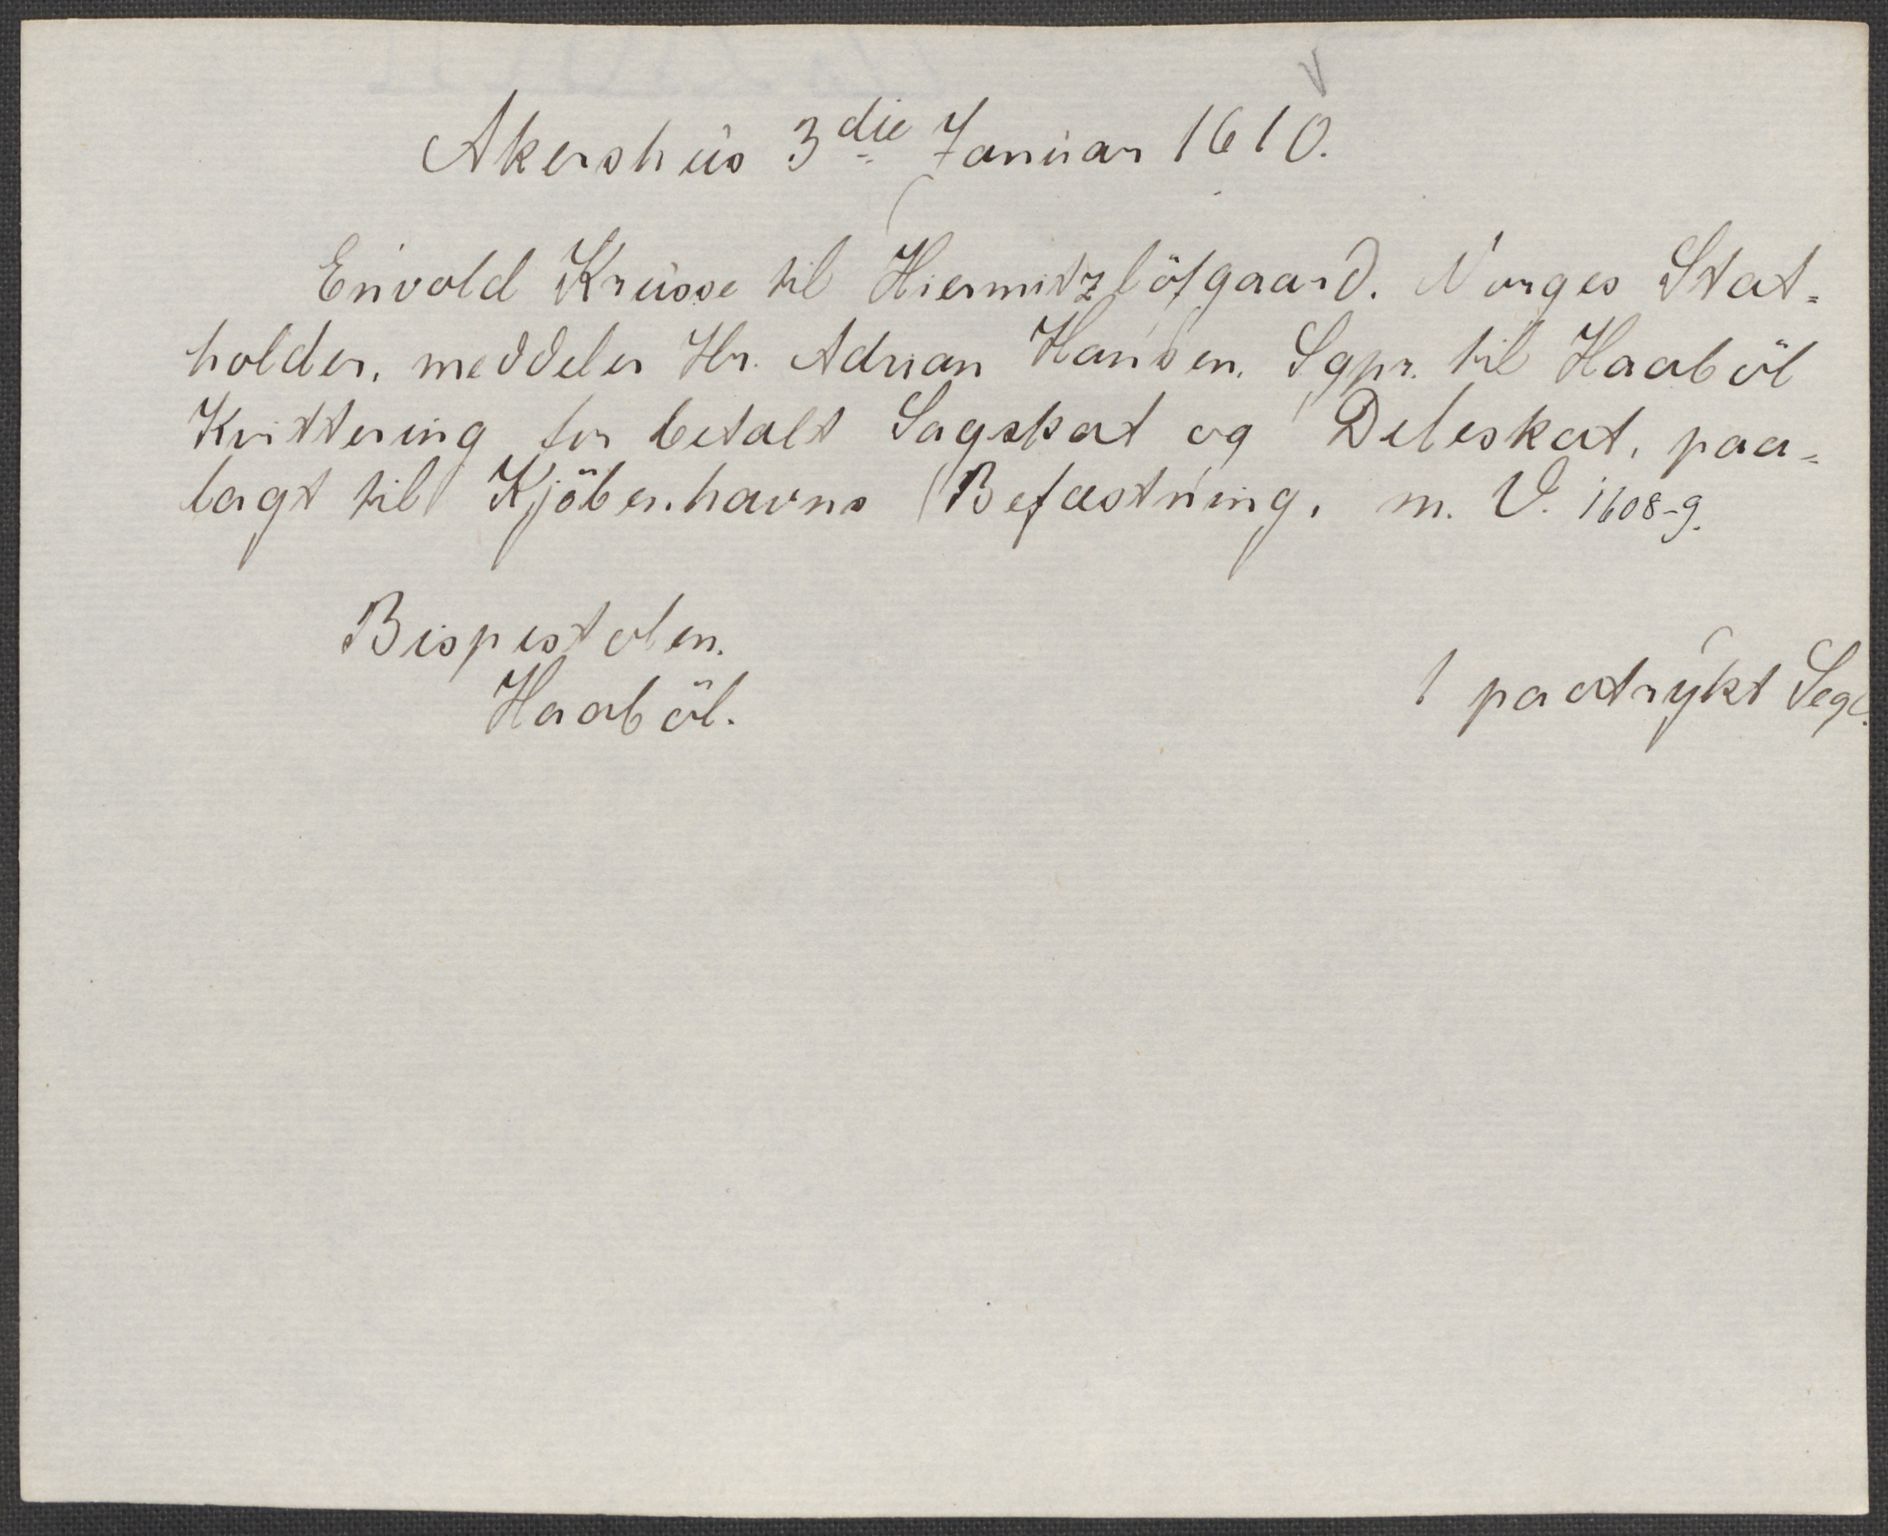 Akershus 3die Januar 1610.
Envold Krusse til Hiermitzlöfgaard. Norges Stat=
holder, meddeler Hr. Adrian Hansen. Sgpr. til Haaböl
Kvittering for betalt Sagskat og Deleskat, paa=
lagt til Kjöbenhavns Befæstning, m. V. 1608-9.
Bispestolen.
Haaböl.
1 paatrykt Segl.